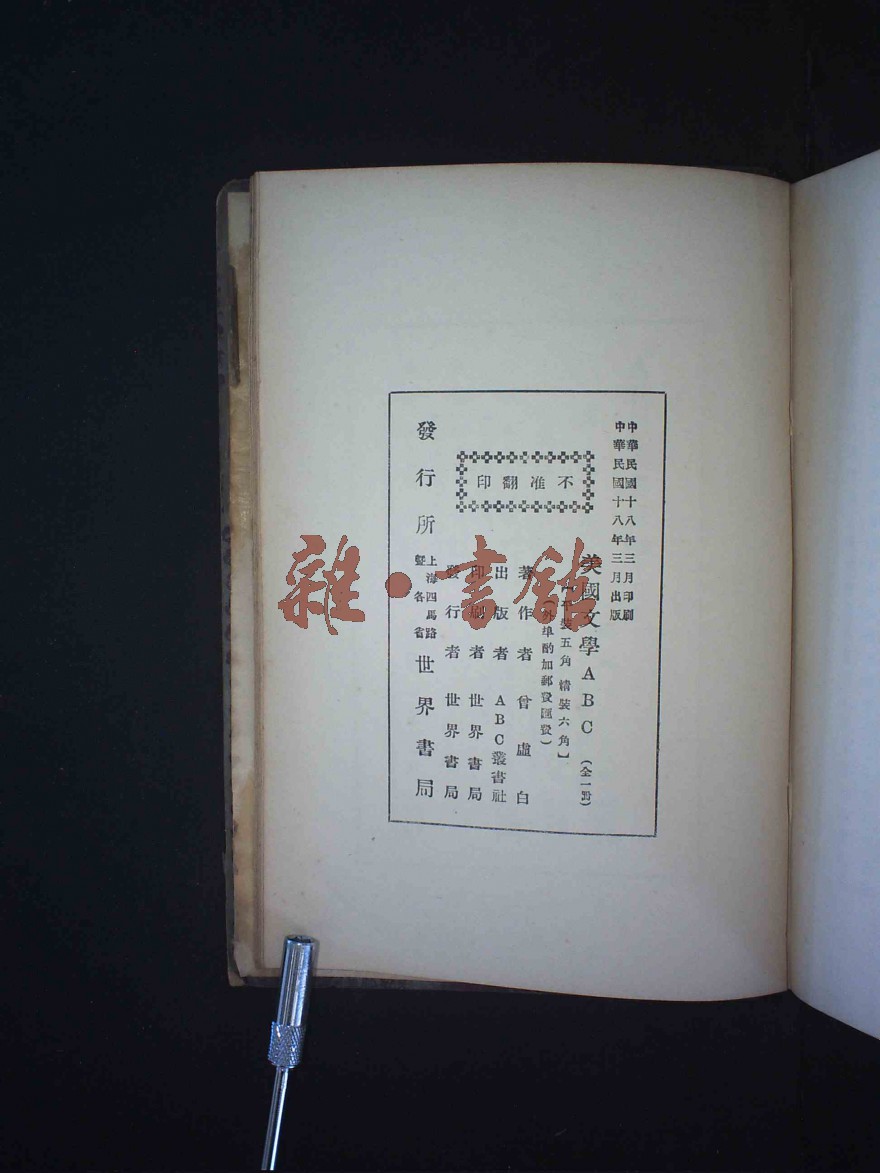 中華民國十八年三月印刷
中華民國十八年三月出版
美國文學ABC（全一冊）
【平裝五角 精裝六角】
（外埠酌加郵費匯費）
不准翻印
著作者 曾虛白
出版者 ABC叢書社
印刷者 世界書局
發行者 世界書局
發行所 上海四馬路暨各省 世界書局
雜·書館